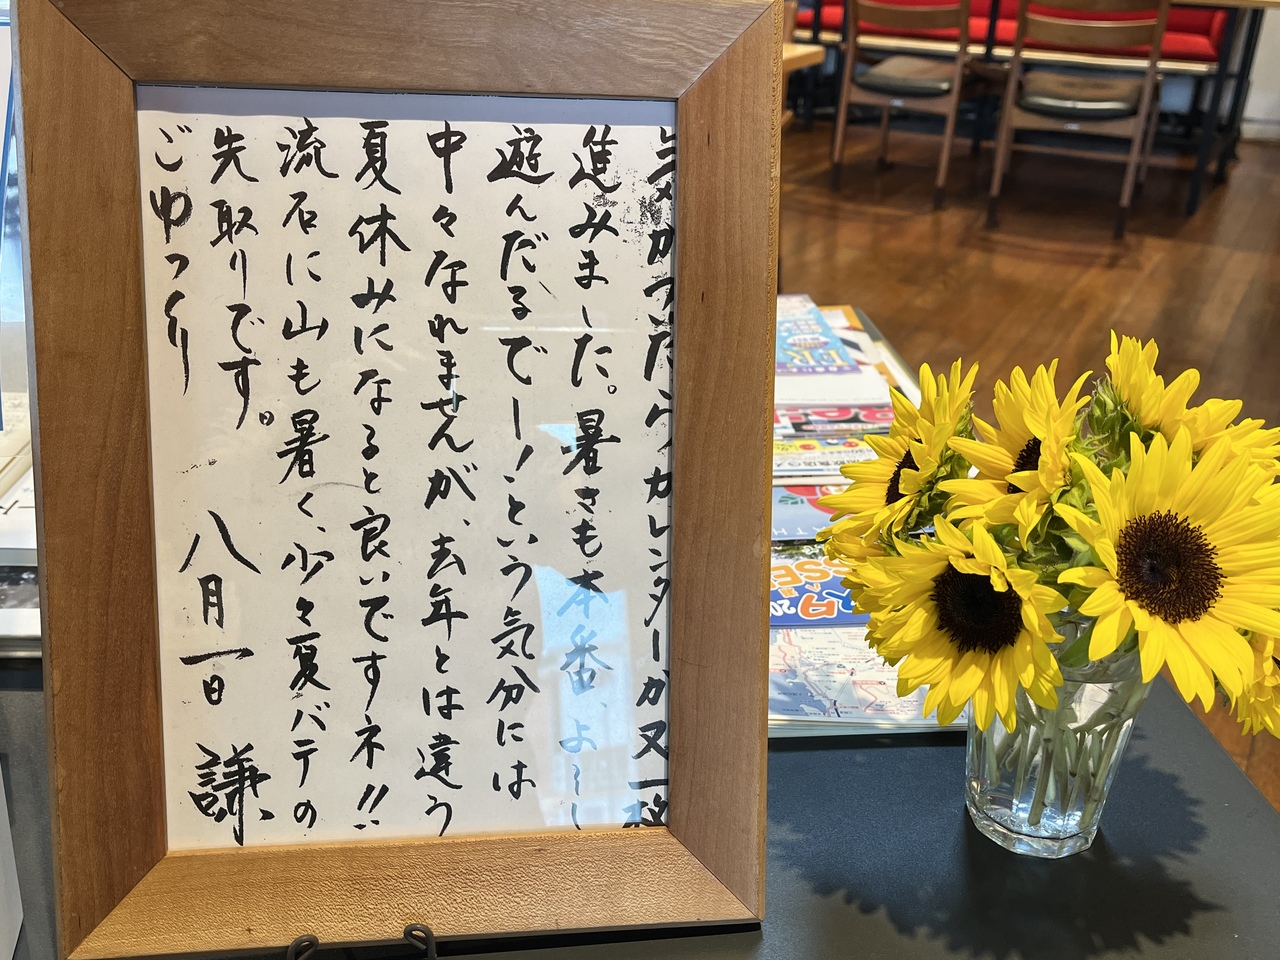 気がついたらカレンダーが又一枚
進みました。暑さも本番、よーし
遊んだるでー!という気分には
中々なれませんが、去年とは違う
夏休みになると良いですネ!!
流石に山も暑く、少々夏バテの
先取りです。
ごゆっくり
八月一日 謙、